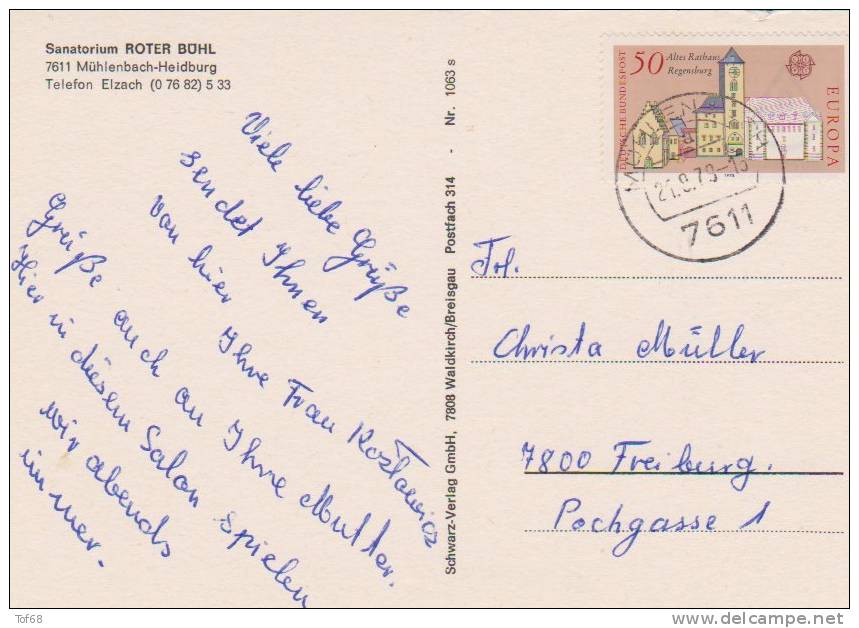 Sanatorium ROTER BÜHL
7611 Mühlenbach-Heidburg
Telefon Elzach (0 76 82) 5 33
Viele liebe Grüße
sendet Ihnen
von hier Ihre Frau Kozłowicz
Grüße auch an Ihre Mutter.
Hier in diesem Salon spielen
wir abends
immer.
Schwarz-Verlag GmbH, 7808 Waldkirch/Breisgau Postfach 314 - Nr. 1063 s
DEUTSCHE BUNDESPOST
50
Altes Rathaus
Regensburg
EUROPA
1978
7611
Frl.
Christa Müller
7800 Freiburg.
Pochgasse 1
Tof68
delcampe.net